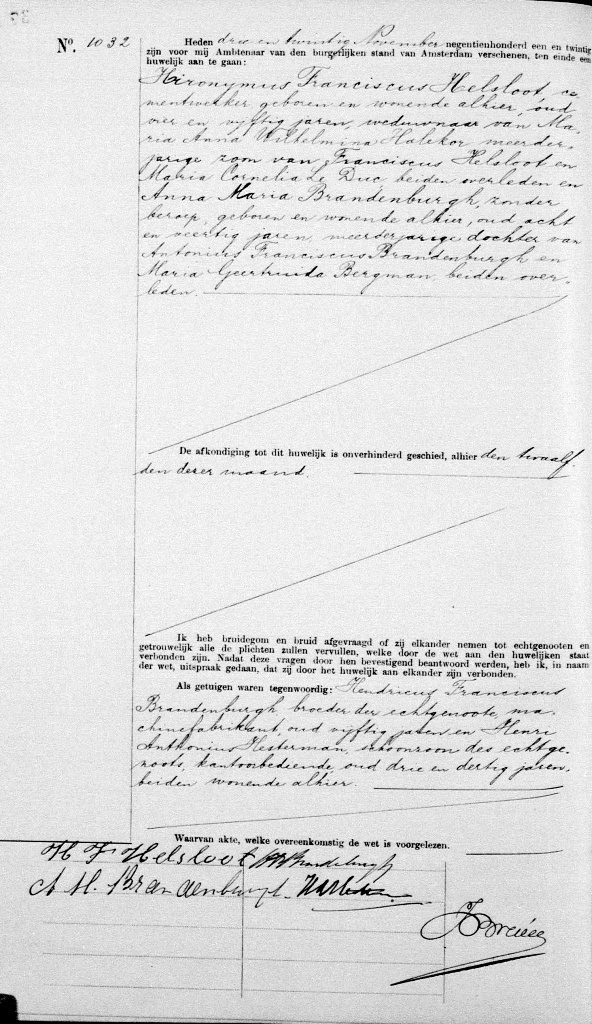 Nº. 1032
Heden drie en twintig November negentienhonderd een en twintig
zijn voor mij Ambtenaar van den burgerlijken stand van Amsterdam verschenen, ten einde een
huwelijk aan te gaan:
Hironymus Franciscus Helsloot, ce-
mentwerker, geboren en wonende alhier, oud
vier en vijftig jaren, weduwnaar van Ma-
ria Anna Wilhelmina Halekor, meerder-
jarige zoon van Franciscus Helsloot en
Maria Cornelia Le Duc, beiden overleden en
Anna Maria Brandenburgh, zonder
beroep, geboren en wonende alhier, oud acht
en veertig jaren, meerderjarige dochter van
Antonius Franciscus Brandenburgh en
Maria Geertruida Bergman, beiden over-
leden.
De afkondiging tot dit huwelijk is onverhinderd geschied, alhier den twaalf-
den dezer maand.
Ik heb bruidegom en bruid afgevraagd of zij elkander nemen tot echtgenooten en
getrouwelijk alle de plichten zullen vervullen, welke door de wet aan den huwelijken staat
verbonden zijn. Nadat deze vragen door hen bevestigend beantwoord werden, heb ik, in naam
der wet, uitspraak gedaan, dat zij door het huwelijk aan elkander zijn verbonden.
Als getuigen waren tegenwoordig: Hendricus Franciscus
Brandenburgh, broeder der echtgenoote, ma-
chinefabrikant, oud vijftig jaren en Henri
Anthonius Hesterman, schoonzoon des echtge-
noots, kantoorbediende, oud drie en dertig jaren,
beiden wonende alhier.
Waarvan akte, welke overeenkomstig de wet is voorgelezen.
H F Helsloot
A M. Brandenburgh